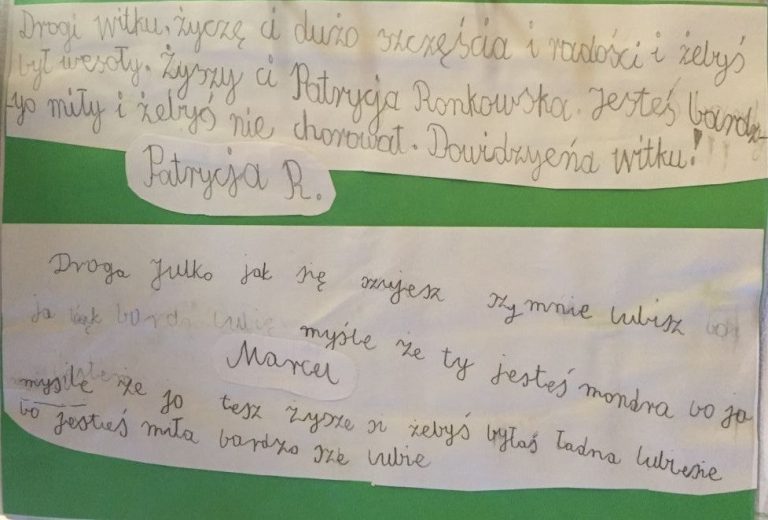 Drogi witku, życzę ci dużo szczęścia i radości i żebyś
był wesoły. Żyszy ci Patrycja Ronkowska. Jesteś bardz-
-yo miły i żebyś nie chorował. Dowidzyeńa witku!
Patrycja R.
Droga Julko jak się szujesz szy mnie lubisz
ja bard lubię myśle że ty jesteś mondra bo ja
Marcel
myśle że jo tesz żysze si żebyś byłaś ładna lubiesie
bo jesteś miła bardzo sze lubie